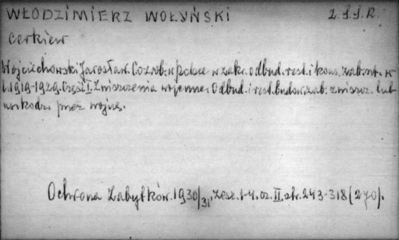 WŁODZIMIERZ WOŁYŃSKI Z.S.S.R.
cerkiew
Wojciechowski Jarosław. Co zrob. w Polsce w zakr. odbud. rest. i kons. zabyt. w
l. 1919-1929. Część I. Zniszczenia wojenne. Odbud. i rest. budow. zab. zniszcz. lub
uszkodz. przez wojnę.
Ochrona Zabytków. 1930/31, zesz. 1-4. cz. II. str. 243-318 (270).